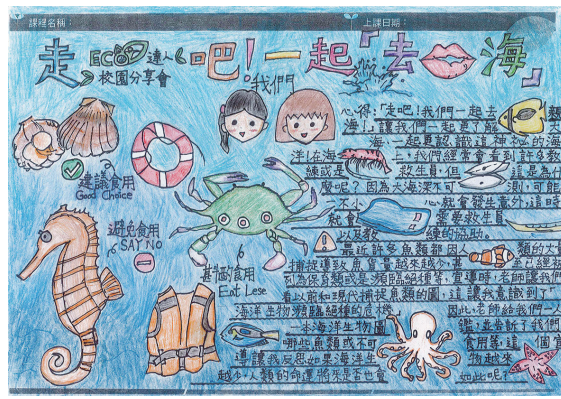 課程名稱：
上課日期：
走吧！一起「去海」
ECO達人
校園分享會
我們
建議食用
Good Choice
避免食用
SAY NO
甚酌食用
Eat Lese
心得：「走吧！我們一起去親
海」，讓我們一起更了解大
海、一起更認識這神祕的海
洋！在海上，我們經常會看到許多教
練或是救生員，但這是為什
麼呢？因為大海深不可測，可能
一不小心就會發生意外，這時
就會需要救生員
以及教練的協助。
最近許多魚類都因人類的大
捕捉導致魚貨量越來越少，甚至已經被
列為保育類或是瀕臨絕種等，宣導時，老師讓我們
看以前和現代捕捉魚類的圖，這讓我意識到了
海洋生物瀕臨絕種的危機，因此，老師給我們一人
一本海洋生物圖鑑，並告訴了我們
哪些魚類或不可食用等，這個宣
導讓我反思如果海洋生物越來
越少，人類的命運將來是否也會如此呢？